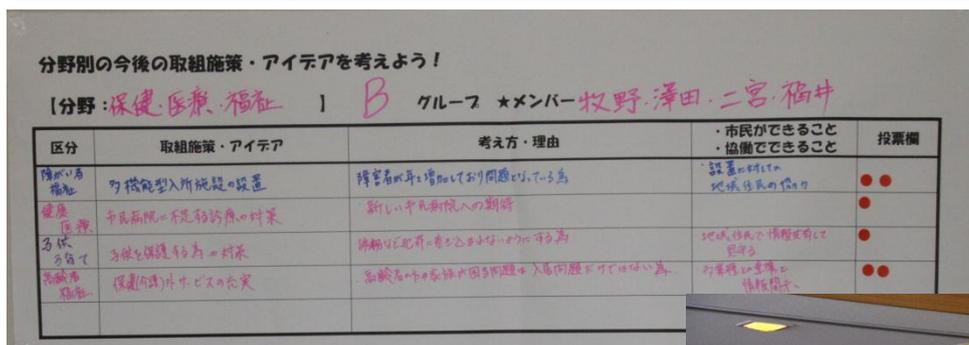 分野別の今後の取組施策・アイデアを考えよう！
【分野：保健・医療・福祉 】 B グループ ★メンバー 牧野・澤田・二宮・福井
区分 取組施策・アイデア 考え方・理由 ・市民ができること ・協働でできること 投票欄
障がい者福祉 多機能型入所施設の設置 障害者が年々増加しており問題となっている為 設置に対しての地域住民の協力
健康医療 市民病院に不足する診療の対策 新しい市民病院への期待
子供子育て 子供を保護する為の対策 など犯罪に巻き込まれないようにする為 地域住民で情報共有して見守る
高齢者福祉 保健(介護)外サービスの充実 高齢者の家族が困る問題は入居問題だけではない為 多業種との連携と情報開示